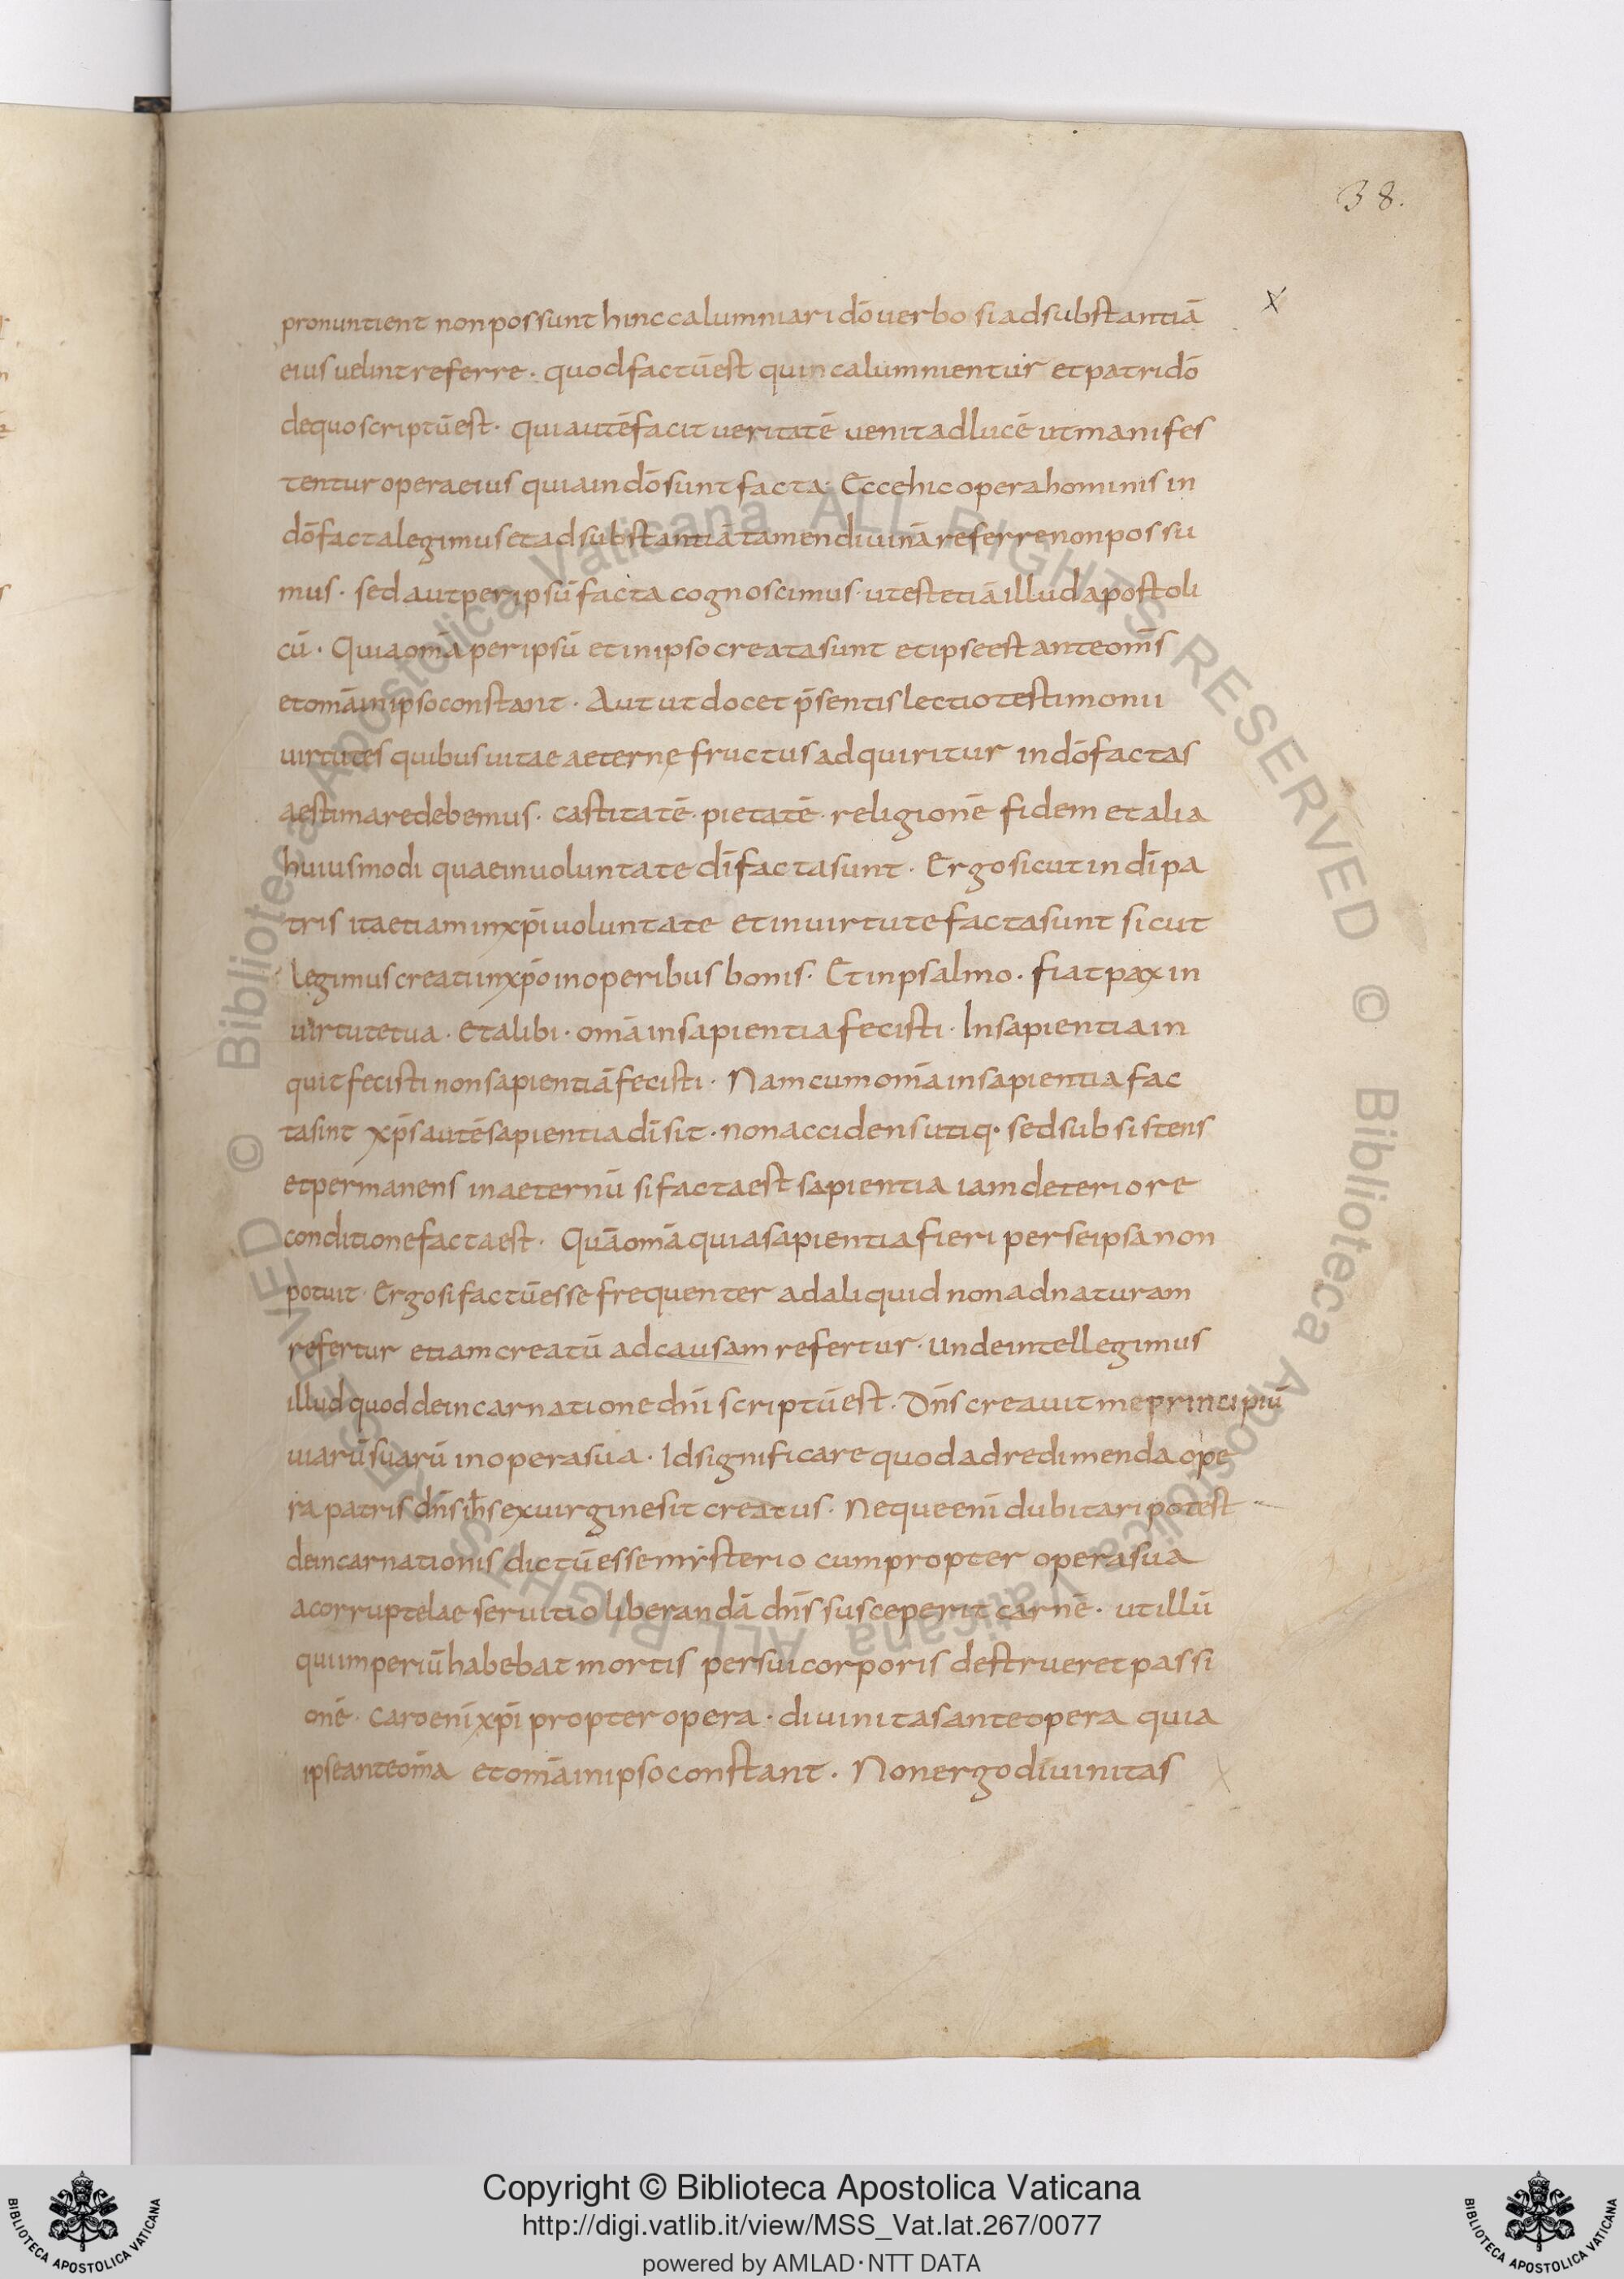 38.
pronuntient non possunt hinc calumniari dō uerbo si ad substantiā
eius uelint referre · quod factū est quin calumnientur et patri dō
de quo scriptū est · qui autē facit ueritatē uenit ad lucē ut manifes
tentur opera eius quia in dō sunt facta · Ecce hic opera hominis in
dō facta legimus et ad substantiā tamen diuinā referre non possu
mus · sed aut per ipsū facta cognoscimus · ut est etiā illud apostoli
cū · Quia omā per ipsū et in ipso creata sunt et ipse est ante om̄s
et omā in ipso constant · Aut ut docet p̄sentis lectio testimonii
uirtutes quibus uitae aeternę fructus adquiritur in dō factas
aestimare debemus · castitatē · pietatē · religionē fidem et alia
huiusmodi quae in uoluntate dī facta sunt · Ergo sicut in dī pa
tris ita etiam in xp̄i uoluntate et in uirtute facta sunt sicut
legimus creati in xp̄o in operibus bonis · Et in psalmo · fiat pax in
uirtute tua · et alibi · omā in sapientia fecisti · In sapientia in
quit fecisti non sapientiā fecisti · Nam cum omīa in sapientia fac
ta sint xp̄s autē sapientia dī sit · non accidens utiq· sed subsistens
et permanens in aeternū si facta est sapientia iam deteriore
conditione facta est · Quā omā quia sapientia fieri per se ipsa non
potuit · Ergo si factū esse frequenter ad aliquid non ad naturam
refertur etiam creatū ad causam refertur · unde intellegimus
illud quod de incarnatione dn̄i scriptū est · Dn̄s creauit me principiū
uiarū suarū in opera sua · Id significare quod ad redimenda ope
ra patris dn̄s ih̄s ex uirgine sit creatus · Neque enī dubitari potest
de incarnationis dictū esse mẏsterio cum propter opera sua
a corruptelae seruitio liberandā dn̄s susceperit carnē · ut illū
qui imperiū habebat mortis per sui corporis destrueret passi
onē · caro enī xp̄i propter opera · diuinitas ante opera quia
ipse ante omīa et omā in ipso constant · Non ergo diuinitas
Copyright © Biblioteca Apostolica Vaticana
http://digi.vatlib.it/view/MSS_Vat.lat.267/0077
powered by AMLAD·NTT DATA
BIBLIOTECA APOSTOLICA VATICANA
BIBLIOTECA APOSTOLICA VATICANA
© Biblioteca Apostolica Vaticana ALL RIGHTS RESERVED © Biblioteca Apostolica Vaticana ALL RIGHTS RESERVED